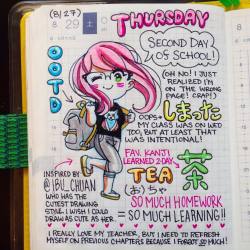 (8/27)
8
29
土
THURSDAY
OOTD
SECOND DAY
OF SCHOOL!
(OH NO! I JUST
REALIZED I'M
ON THE WRONG
PAGE! CRAP!)
しまった
OOPS
MY CLASS WAS ON WED
TOO, BUT AT LEAST THAT
WAS INTENTIONAL!
FAV. KANJI
LEARNED 2-DAY
TEA
(おちゃ)
茶
INSPIRED BY
@IBU_CHUAN
WHO HAS THE
CUTEST DRAWING
STYLE. I WISH I COULD
DRAW AS CUTE AS HER
SO MUCH HOMEWORK
= SO MUCH LEARNING!!
I REALLY LOVE MY TEACHER, BUT I NEED TO REFRESH
MYSELF ON PREVIOUS CHAPTERS BECAUSE I FORGOT SO MUCH!